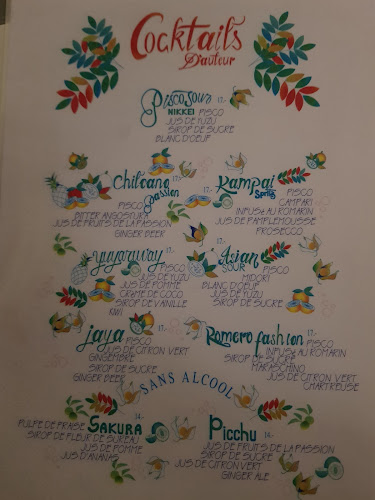 Cocktails
D'auteur
Pisco Sour 17.-
NIKKEI PISCO
JUS DE YUZU
SIROP DE SUCRE
BLANC D'OEUF
Chilcano 17.-
passion
PISCO
BITTER ANGOSTURA
JUS DE FRUITS DE LA PASSION
GINGER BEER
Kampai 17.-
Spritz
PISCO
CAMPARI
INFUSé AU ROMARIN
JUS DE PAMPLEMOUSSE
PROSECCO
yuyaraway 17.-
PISCO
JUS DE YUZU
JUS DE POMME
CRèME DE COCO
SIROP DE VANILLE
KIWI
Asian 17.-
SOUR PISCO
MIDORI
BLANC D'OEUF
JUS DE YUZU
SIROP DE SUCRE
jaya 17.-
PISCO
JUS DE CITRON VERT
GINGEMBRE
SIROP DE SUCRE
GINGER BEER
Romero fashion 17.-
PISCO
INFUSé AU ROMARIN
SIROP DE SUCRE
MARASCHINO
JUS DE CITRON VERT
CHARTREUSE
SANS ALCOOL
SAKURA 14.-
PULPE DE FRAISE
SIROP DE FLEUR DE SUREAU
JUS DE POMME
JUS D'ANANAS
Picchu 14.-
JUS DE FRUITS DE LA PASSION
SIROP DE SUCRE
JUS DE CITRON VERT
GINGER ALE